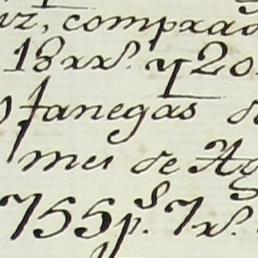 uz, comprad
18 rr.^s y 20
fanegas de
mes de Ag
755 p.^s 7 r.^s